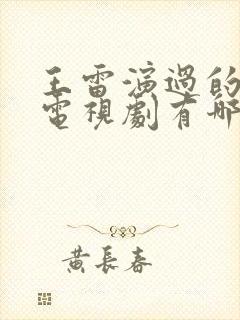 王雷演過的
電視劇有哪
黄長春